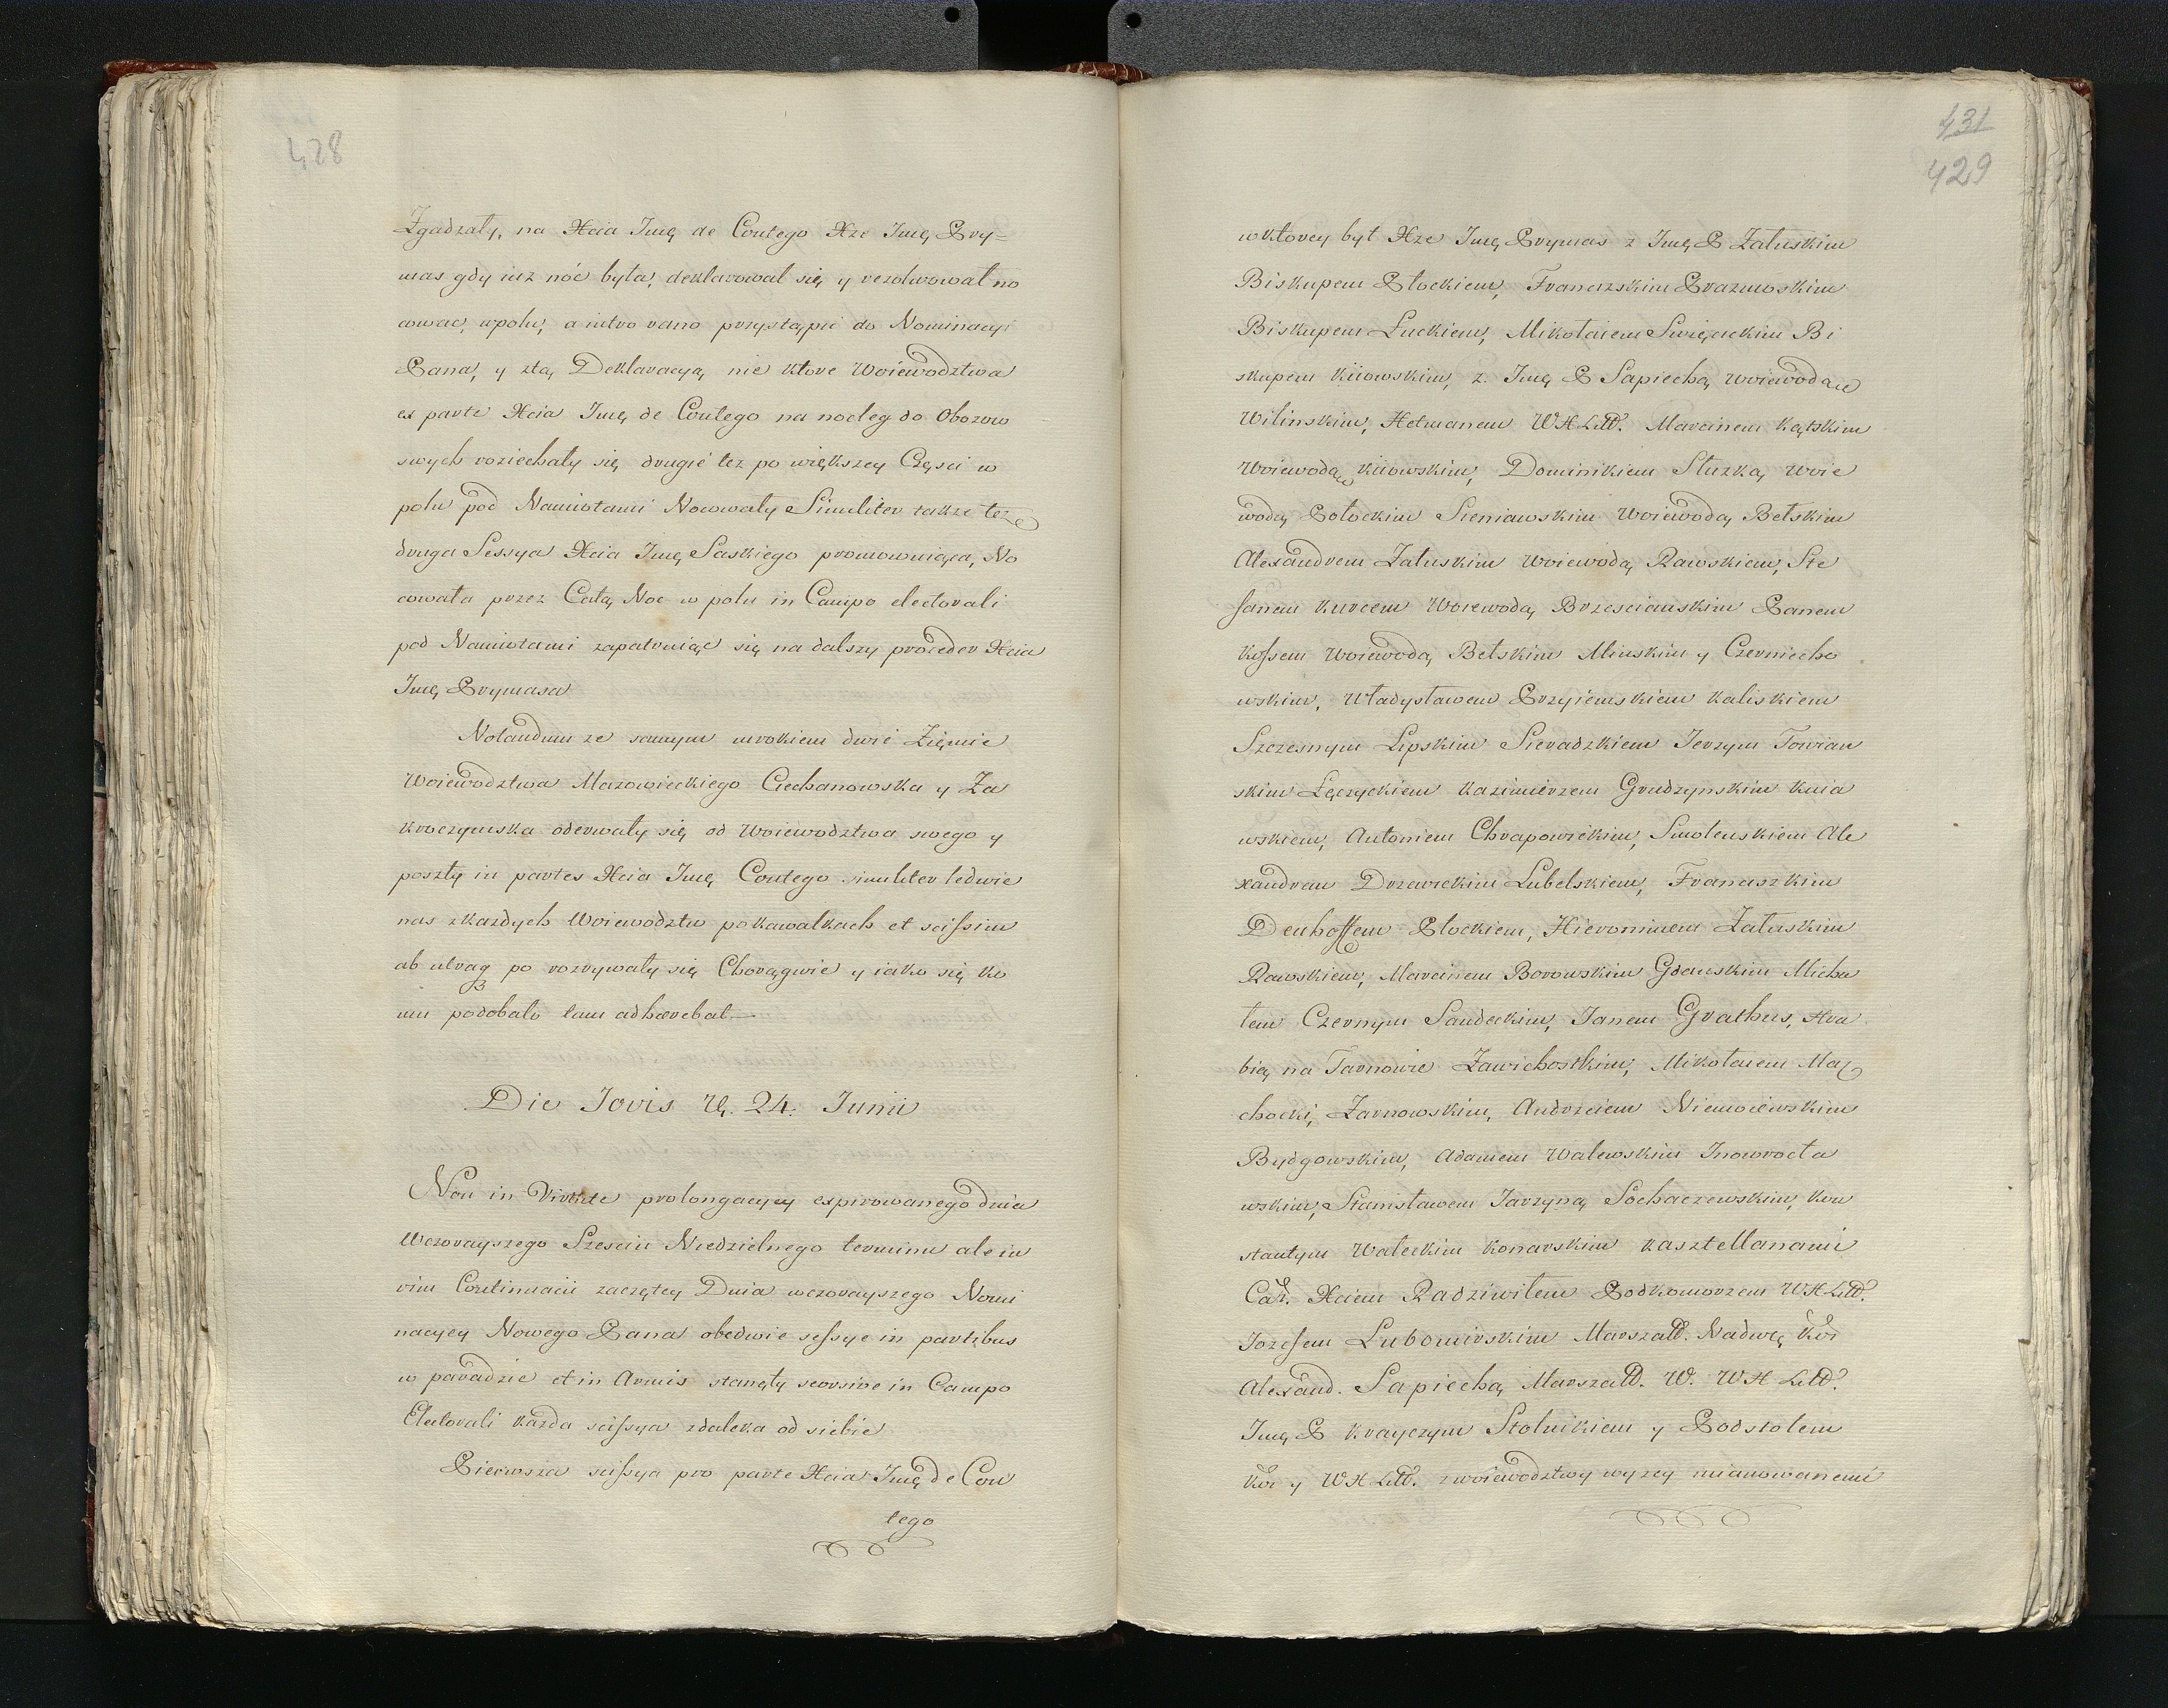 428
Zgadzały, na Xcia Jmę de Contego Xze Jmę Pry=
mas gdy iuz nóc była, deklarował się y rezolwował no
cować, wpolu, a iutro rano przystąpić do Nominacyi
Pana, y ztą Deklaracyą nie ktore Woiewodztwa
ex parte Xcia Jmę de Contego na nocleg do Obozow
swych roziechały się drugie tez po większey Częsci w
polu pod Namiotami Nocowały Similiter takze teze
druga Sessya Xcia Jmę Saskiego promowuiąca, No
cowała przez Całą Noc w polu in Campo electorali
pod Namiotami zapatruiąc się na dalszy proceder Xcia
Jmę Prymasa
Notandum ze samym mrokiem dwie Ziemie
Woiewodztwa Mazowieckiego Ciechanowska y Za
kroczymska oderwały się od Woiewodztwa swego y
poszły in partes Xcia Jmę Contego similiter ledwie
nas zkazdych Woiewodztw po kawałkach et scissim
ab utraq po rozrywały się Chorągwie y iako się ko
mu podobało tam adhærebat
Die Jovis 24. Junii
Non in Virtute prolongacyey expirowanego dnia
Wczorayszego Szesciu Niedzielnego terminu ale in
vim Continuacii zaczętey Dnia wczorayszego Nomi
nacyey Nowego Pana obedwie sessye in partibus
w paradzie et in Armis stanęły seorsive in Campo
Electorali kazda scissya zdaleka od siebie
Pierwsza scissya pro parte Xcia Jmę de Con
tego
431
429
wktorey był Xze Jmę Prymas z Jmę P Załuskim
Biskupem Płockiem, Franciszkim Prazmoskim
Biskupem Łuckiem, Mikołaiem Swięcickim Bi
skupem kiiowskim, z. Jmę P Sapiechą woiewodąe
Wilinskim, Hetmanem WXLitt. Marcinem Kątskim
Woiewodą kiiowskim, Dominikiem Słuzką Woie
wodą Połockim Sieniawskim Woiewodą Bełskim
Alexandrem Załuskim Woiewodą Rawskiem, Ste
fanem kurcem Woiewodą Brzescianskim Panem
kossem Woiewodą Bełskim Minskim y Czerniecho
wskim, Władysławem Przyiemskiem kaliskiem
Szczesnym Lipskim Sieradzkiem Jerzym Towian
skim Łęczyckiem Kazimierzem Grudzynskim kuia
wskiem, Antoniem Chrapowickim, Smolenskiem Ale
xandrem Drzewickim Lubelskiem, Franciszkim
Denhoffem Płockiem, Hieronimem Załuskim
Rawskiem, Marcinem Borowskim Gdanskim Micha
łem Czernym Sandeckim, Janem Grathus, Hra
bią na Tarnowie Zawichostkim, Mikołaiem Ma
chocki, Zarnowskim, Andrzeiem Niemoiewskim
Bydgowskim, Adamem Walewskim Inowrocła
wskim, Stanisławem Jarzyną Sochaczewskim, kon
stantym Waleckim Konarskim kasztellanami
Car. Xciem Radziwilem Podkomorzem WXLitt.
Jozefem Lubomirskim Marszałł. Nadwę, kor
Alexand. Sapiechą Marszałł. W. WX Litt.
Jmę P krayczym Stolnikiem y Podstolem
kor y WXLitt. zwoiewodztwy wyzey mianowanemi